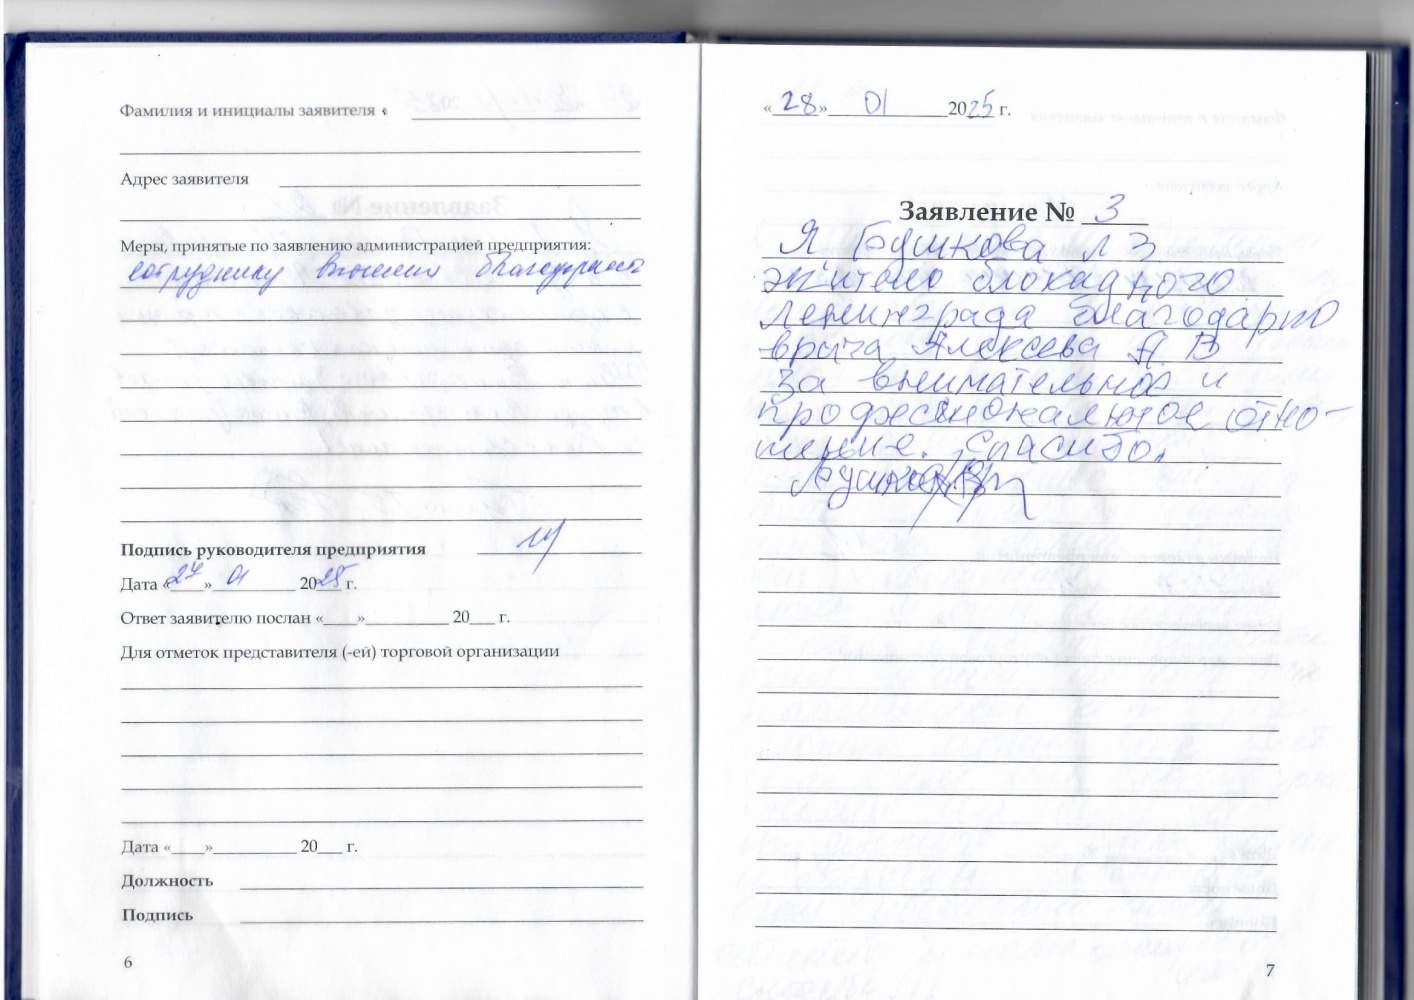 Фамилия и инициалы заявителя
Адрес заявителя
Меры, принятые по заявлению администрацией предприятия:
сотруднику вынесена благодарность
Подпись руководителя предприятия
Дата «27» 01 2025 г.
Ответ заявителю послан «____»__________ 20___ г.
Для отметок представителя (-ей) торговой организации
Дата «____»__________ 20___ г.
Должность
Подпись
6
«28» 01 2025 г.
Заявление № 3
Я Бушкова Л З
житель блокадного
Ленинграда благодарю
врача Алексева А. В
за внимательное и
професиональное отно-
шение. Спасибо.
Бушкова
7